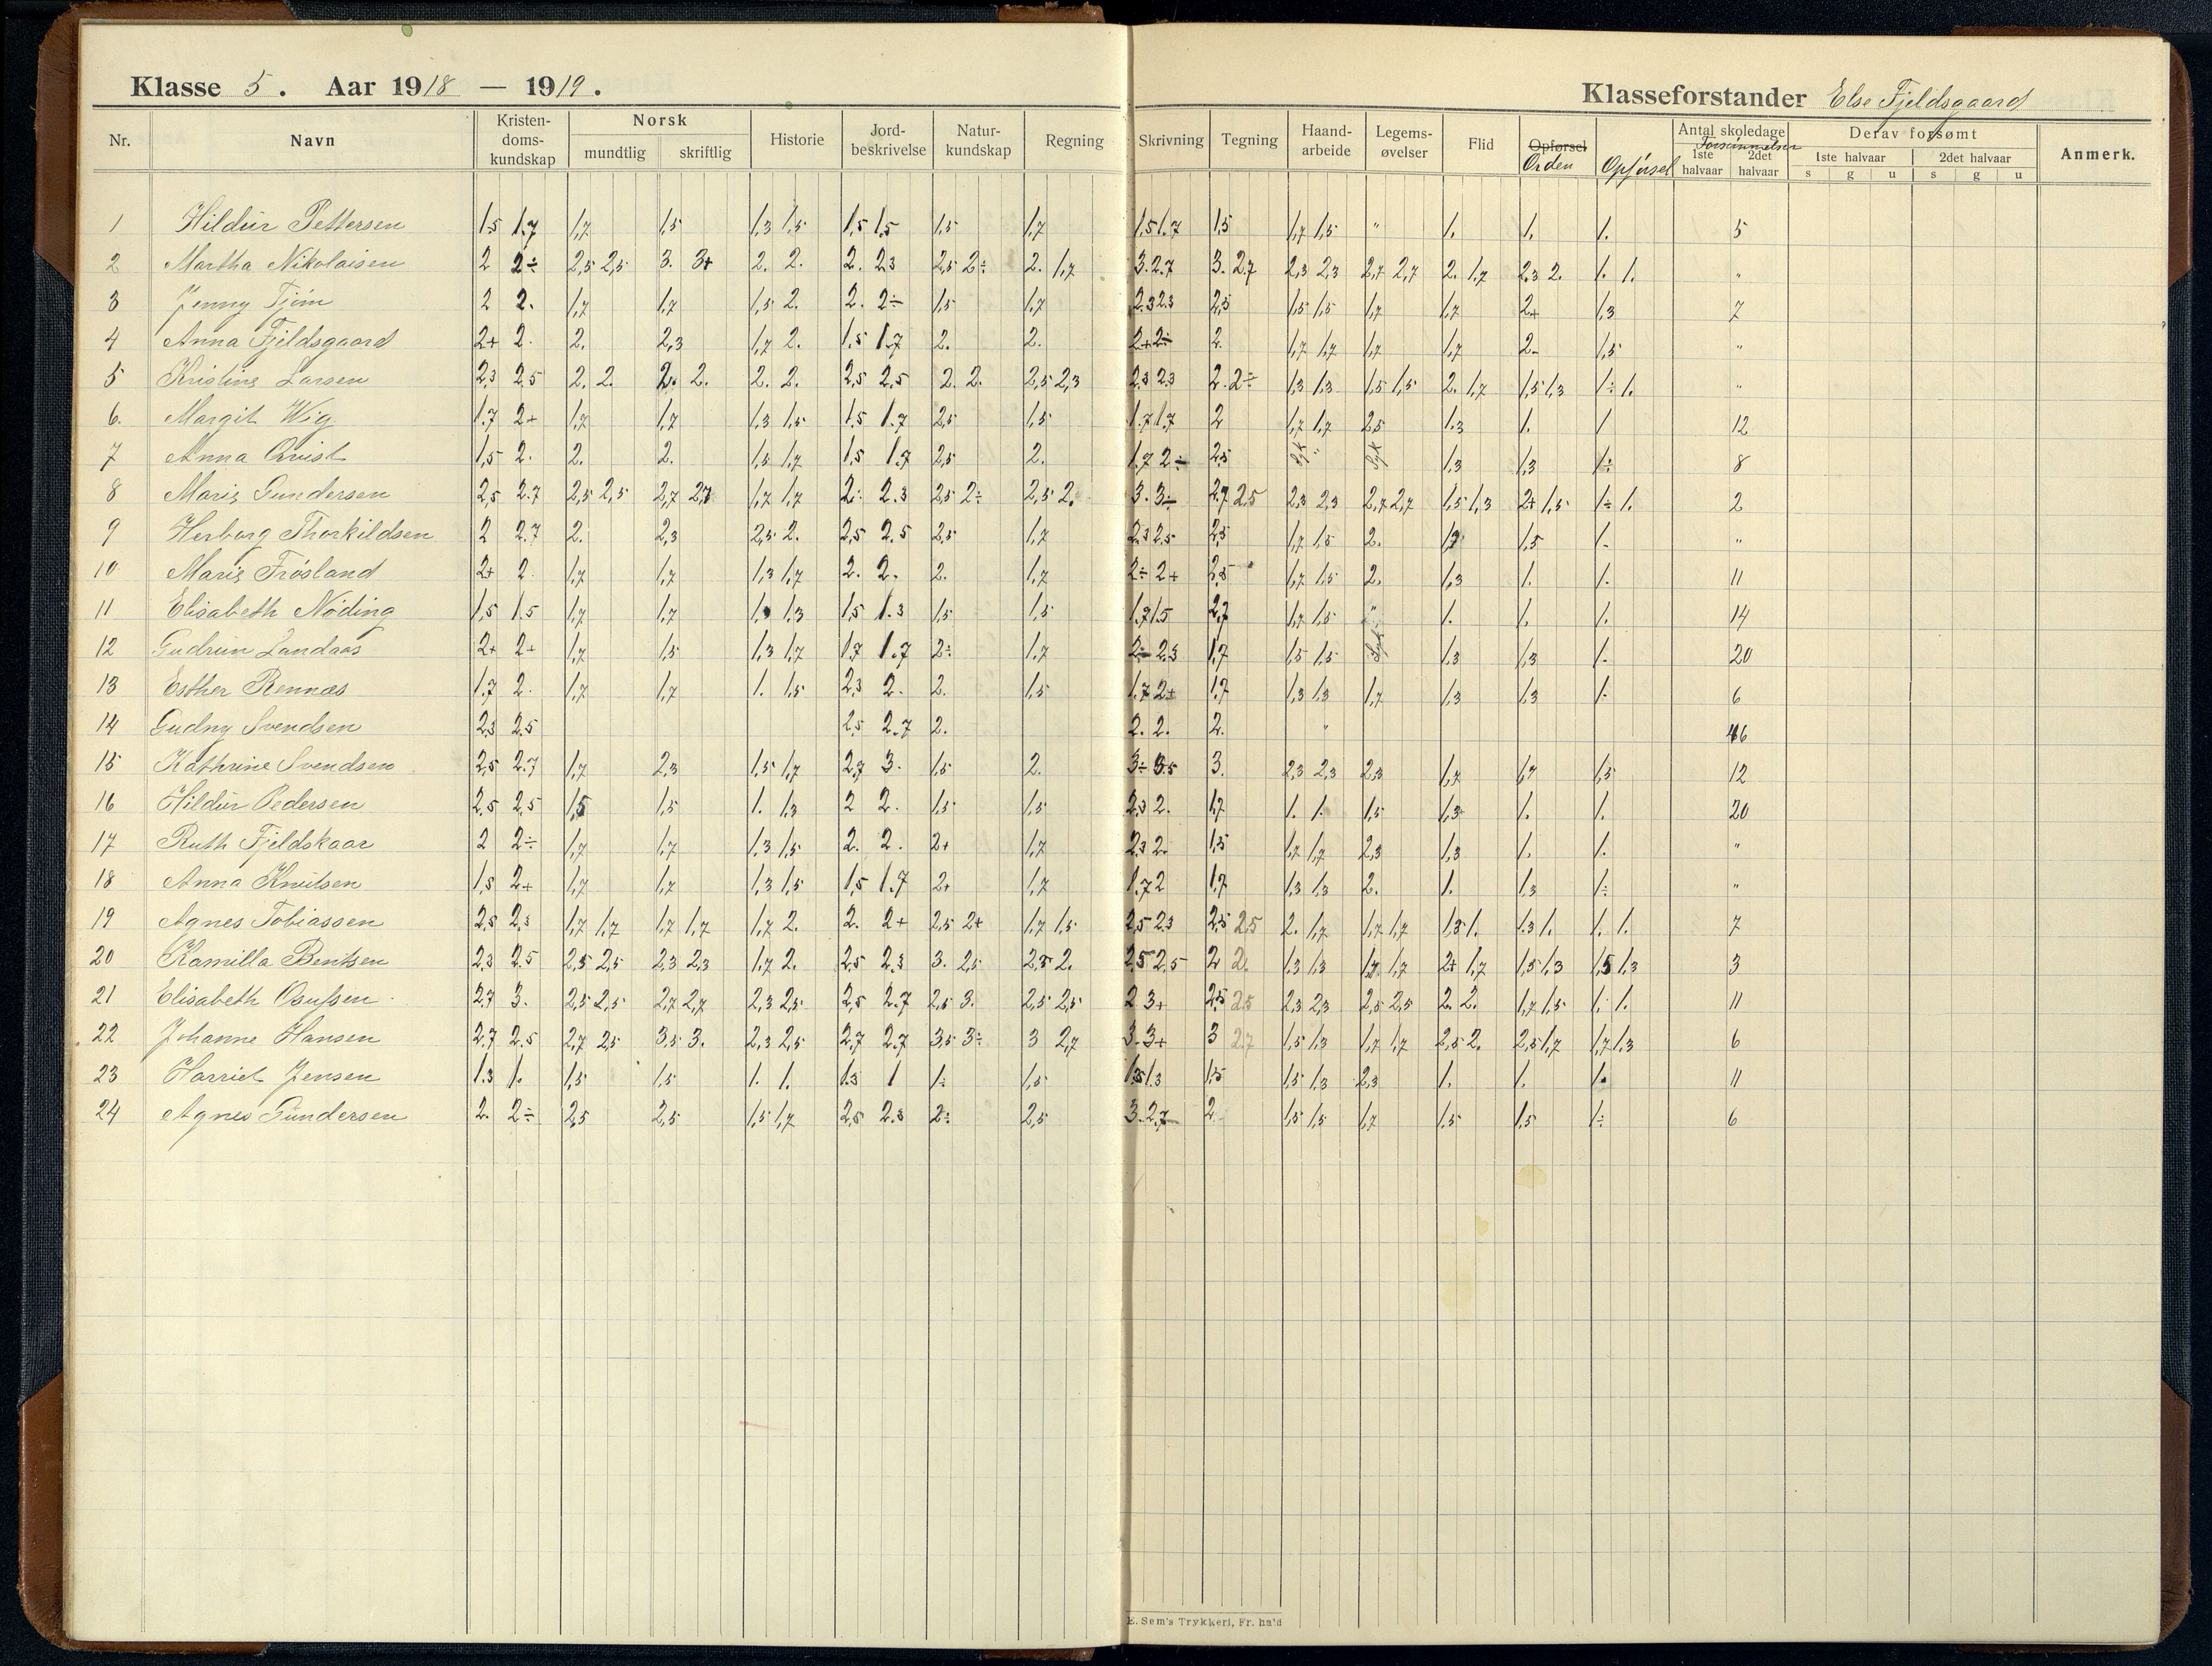 Klasse 5. Aar 1918 — 1919.
Klasseforstander Else Fjeldsgaard
Nr. Navn Kristendomskundskap Norsk mundtlig skriftlig Historie Jordbeskrivelse Naturkundskap Regning Skrivning Tegning Haandarbeide Legemsøvelser Flid Opførsel Orden Opførsel Antal skoledage Forsømmelser 1ste halvaar 2det halvaar Derav forsømt 1ste halvaar s g u 2det halvaar s g u Anmerk.
1 Hildur Pettersen 1.5 1.7 1,7 1,5 1,3 1,5 1,5 1,5 1,5 1,7 1.5 1.7 1.5 1,7 1,5 " 1. 1. 1. 5
2 Martha Nikolaisen 2 2÷ 2,5 2,5 3. 3+ 2. 2. 2. 2.3 2,5 2÷ 2. 1,7 3. 2.7 3. 2.7 2,3 2,3 2,7 2,7 2. 1,7 2.3 2. 1. 1. "
3 Jenny Tjøm 2 2. 1,7 1,7 1,5 2. 2. 2÷ 1,5 1,7 2.3 2.3 2,5 1,5 1,5 1,7 1,7 2+ 1,3 7
4 Anna Fjeldsgaard 2+ 2. 2. 2,3 1,7 2. 1.5 1.7 2. 2. 2+ 2÷ 2. 1,7 1,7 1,7 1,7 2- 1,5 "
5 Kristine Larsen 2,3 2.5 2. 2. 2. 2. 2. 2. 2,5 2,5 2. 2. 2,5 2,3 2.3 2.3 2. 2÷ 1,3 1,3 1,5 1,5 2. 1,7 1,5 1,3 1÷ 1. "
6. Margit Wig 1.7 2+ 1,7 1,7 1,3 1,5 1.5 1.7 2,5 1,5 1.7 1.7 2 1,7 1,7 2,5 1.3 1. 1 12
7 Anna Qvist 1,5 2. 2. 2. 1,5 1,7 1,5 1.7 2,5 2. 1.7 2÷ 2.5 Syk " Syk 1,3 1,3 1÷ 8
8 Marie Gundersen 2,5 2.7 2,5 2,5 2,7 2,7 1,7 1,7 2÷ 2.3 2,5 2÷ 2,5 2. 3. 3÷ 2.7 2.5 2,3 2,3 2,7 2,7 1,5 1,3 2+ 1,5 1÷ 1. 2
9 Herborg Thorkildsen 2 2.7 2. 2,3 2,5 2. 2,5 2.5 2,5 1,7 2.3 2.5 2.5 1,7 1,5 2. 1,5 1. "
10 Marie Frøsland 2+ 2. 1,7 1,7 1,3 1,7 2. 2. 2. 1,7 2÷ 2+ 2,5 1,7 1,5 2. 1,3 1. 1. 11
11 Elisabeth Nøding 1,5 1.5 1,7 1,7 1,3 1,5 1.3 1,5 1,5 1.7 1.5 2,7 1,7 1,5 " 1. 1. 1. 14
12 Gudrun Landaas 2+ 2+ 1,7 1,5 1,3 1,7 1.7 1.7 2÷ 1,7 2÷ 2.3 1.7 1,5 1,5 Syk 1,3 1,3 1. 20
13 Esther Rennæs 1.7 2. 1,7 1,7 1. 1,5 2,3 2. 2. 1,5 1.7 2+ 1.7 1,3 1,3 1,7 1,3 1,3 1. 6
14 Gudny Svendsen 2.3 2.5 2,5 2.7 2. 2. 2. 2. " 46
15 Kathrine Svendsen 2,5 2.7 1,7 2,3 1,5 1,7 2,7 3. 1,5 2. 3÷ 3.5 3. 2,3 2,3 2,3 1,7 1,7 1,5 12
16 Hildur Pedersen 2,5 2,5 1,5 1,5 1. 1,3 2 2. 1,5 1,5 2.3 2. 1.7 1. 1. 1,5 1,3 1. 1. 20
17 Ruth Fjeldskaar 2 2÷ 1,7 1,7 1,3 1,5 2. 2. 2+ 1,7 2.3 2. 1.5 1,7 1,7 2,3 1,3 1. 1. "
18 Anna Knutsen 1,5 2+ 1,7 1,7 1,3 1,5 1,5 1.7 2+ 1,7 1.7 2 1.7 1,3 1,3 2. 1. 1,3 1÷ "
19 Agnes Tobiassen 2,5 2,3 1,7 1,7 1,7 1,7 1,7 2. 2. 2+ 2,5 2+ 1,7 1,5 2.5 2.3 2.5 2.5 2. 1,7 1,7 1,7 1,3 1. 1.3 1. 1. 1. 7
20 Kamilla Bentsen 2.3 2.5 2,5 2,5 2,3 2,3 1,7 2. 2,5 2.3 3. 2,5 2,5 2. 2.5 2.5 2 2. 1,3 1,3 1,7 1,7 2+ 1,7 1,5 1,3 1,5 1,3 3
21 Elisabeth Osufsen 2.7 3. 2,5 2,5 2,7 2,7 2,3 2,5 2,5 2.7 2,5 3. 2,5 2,5 2 3+ 2.5 2.5 2,3 2,3 2,5 2,5 2. 2. 1,7 1,5 1. 1. 11
22 Johanne Hansen 2.7 2.5 2,7 2,5 3,5 3. 2,3 2,5 2,7 2.7 3,5 3÷ 3 2,7 3. 3+ 3 2.7 1,5 1,3 1,7 1,7 2,5 2. 2,5 1,7 1,7 1,3 6
23 Harriet Jensen 1.3 1. 1,5 1,5 1. 1. 1.3 1 1÷ 1,5 1.5 1.3 1.5 1,5 1,3 2,3 1. 1. 1. 11
24 Agnes Gundersen 2. 2÷ 2,5 2,5 1,5 1,7 2,5 2.3 2÷ 2,5 3. 2.7 2. 1,5 1,5 1,7 1,5 1,5 1÷ 6
E. Sem's Trykkeri, Fr. hald